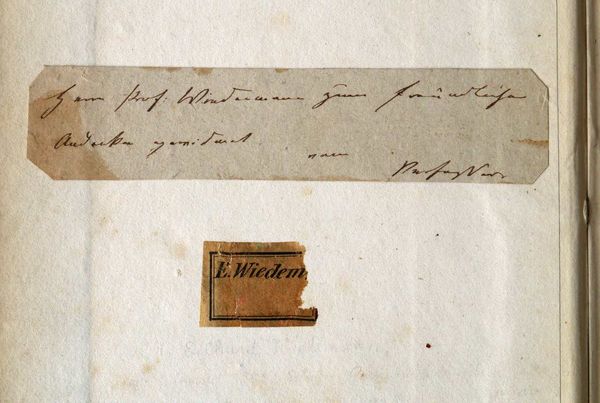 Herrn Prof: Wiedemann zum freundlichen
Andenken gewidmet
vom
Verfasser
E. Wiedem